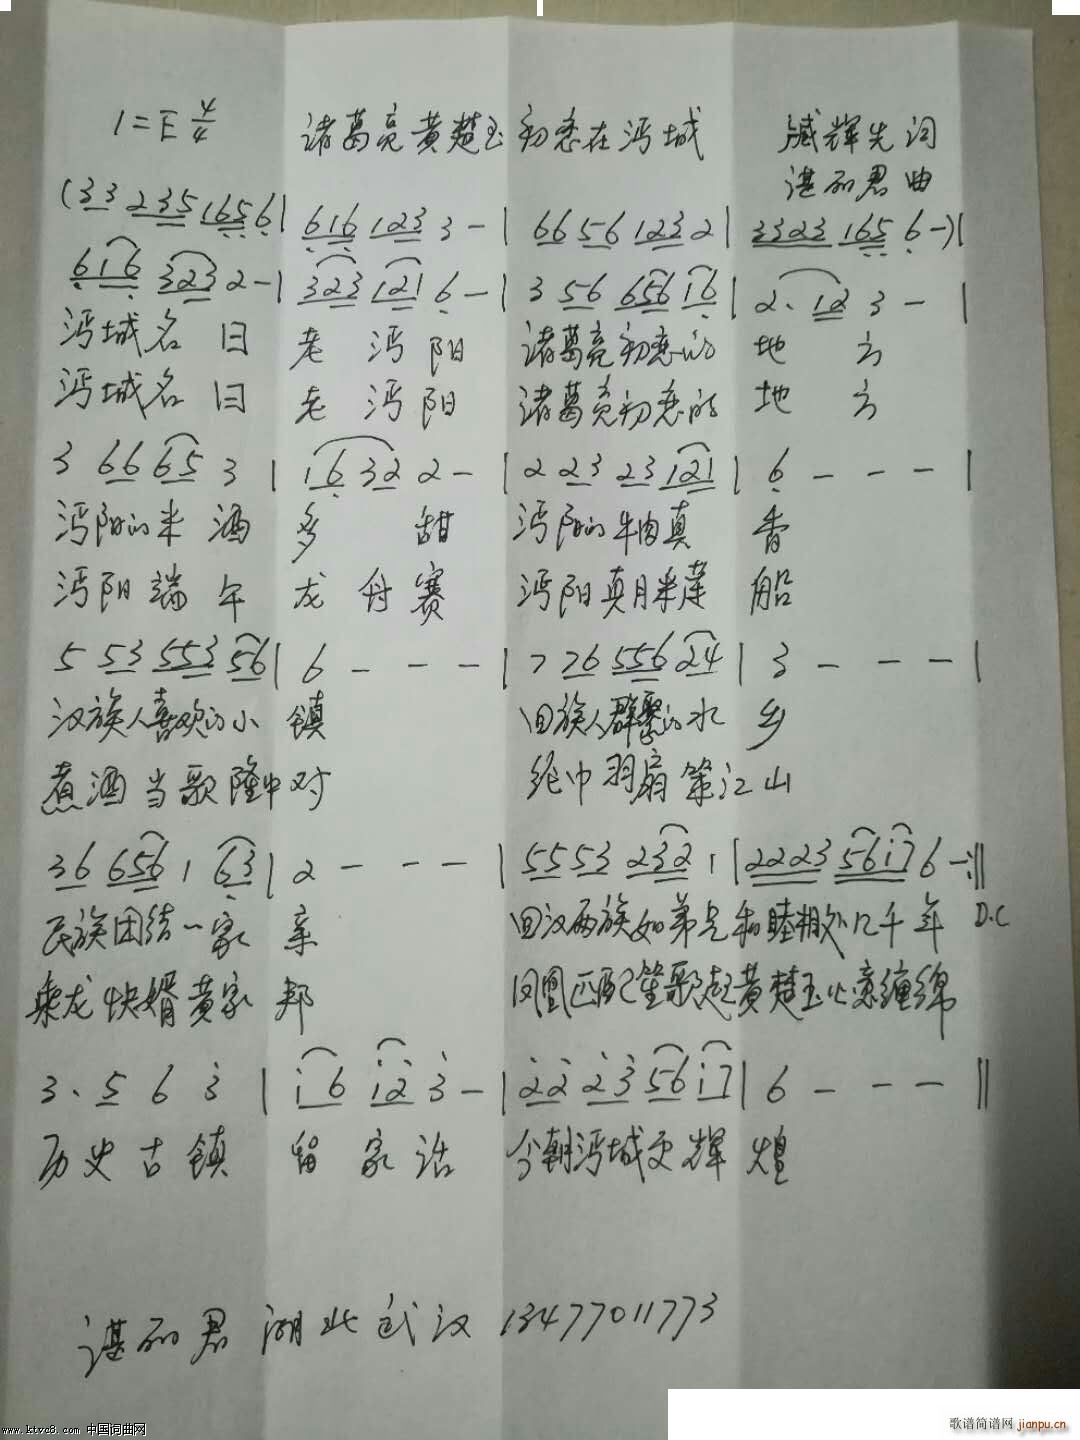 1=E 4/4 诸葛亮黄楚玉初恋在沔城 臧辉先词
谌丽君曲
(33 235 1656| 616 123 3 -| 66 56 123 2| 3323 165 6 -)|
616 323 2 -| 323 121 6 -| 3 56 656 16| 2. 12 3 - |
沔城名曰 老沔阳 诸葛亮初恋的 地方
沔城名曰 老沔阳 诸葛亮初恋的 地方
3 66 65 3 | 16 32 2 -| 2 23 23 121| 6 - - - |
沔阳的米酒 多 甜 沔阳的牛肉真 香
沔阳端午 龙舟赛 沔阳真月米莲 船
5 53 553 56| 6 - - - | 7 76 556 24| 3 - - - |
汉族人喜欢的小 镇 回族人群聚的水 乡
煮酒当歌隆中对 纶巾羽扇策江山
36 656 1 63| 2 - - - | 5553 232 1 |2223 56i7 6 -:||
民族团结一家 亲 回汉两族如弟兄和睦相处几千年 D.C
乘龙快婿黄家 邦 凤凰匹配笙歌起黄楚玉比恋缠绵
3. 5 6 3 | i6 i2 3 -| 22 23 56 i7| 6 - - - ||
历史古镇 留家话 今朝沔城更辉 煌
谌丽君 湖北武汉 13477011773
www.ktvc8.com 中国词曲网
歌谱简谱网 jianpu.cn